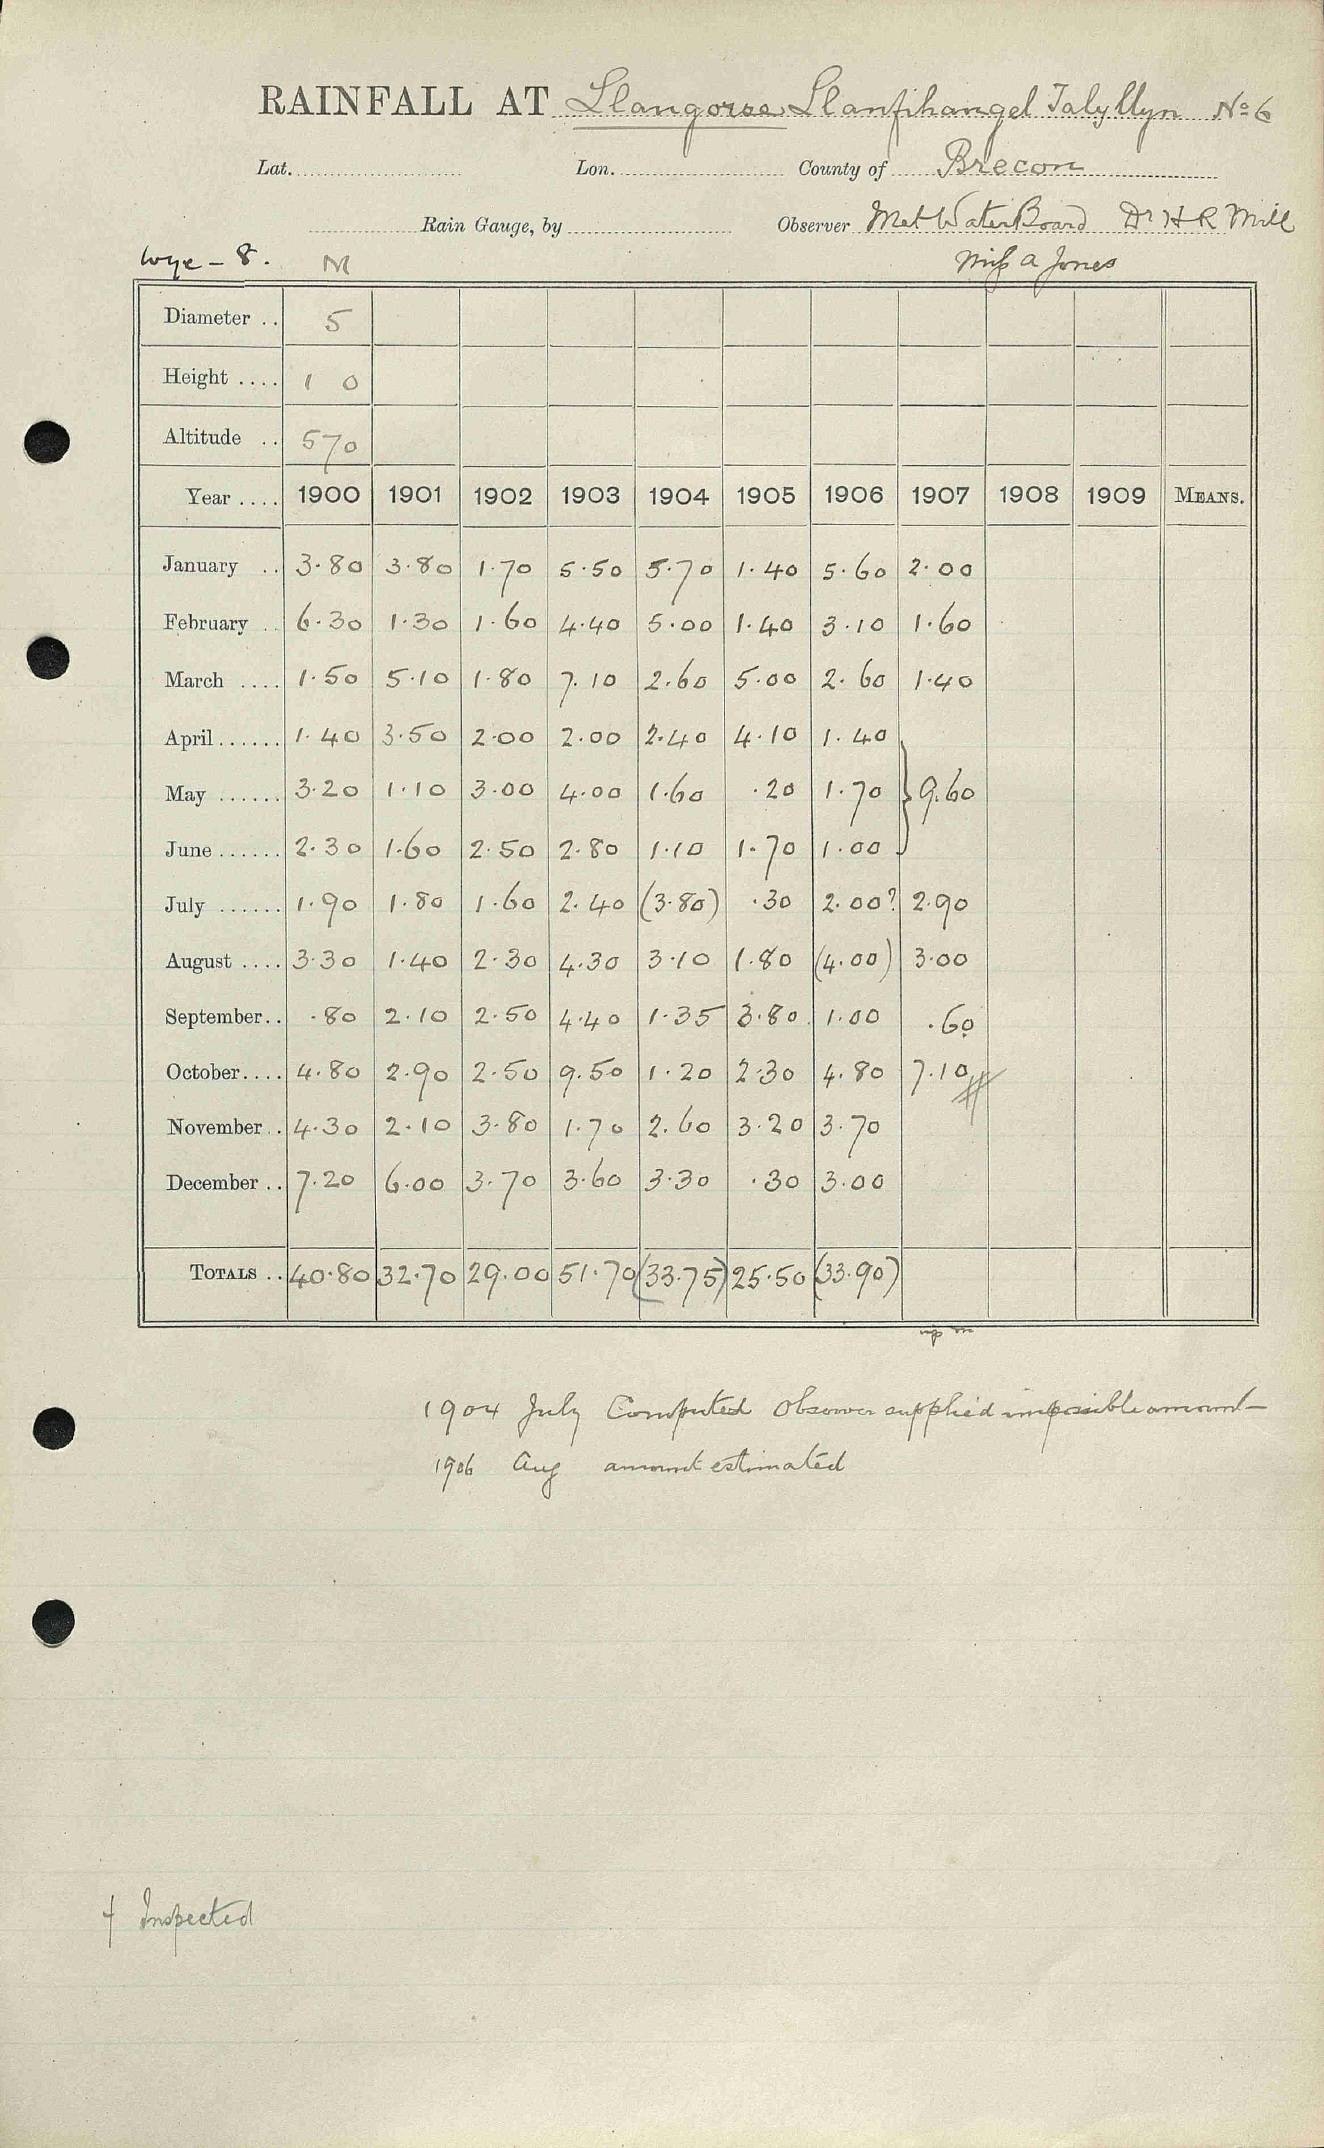 RAINFALL AT Llangorse Llanfihangel Talyllyn No 6
Lat. Lon. County of Brecon
Rain Gauge, by Observer Met Water Board Dr H R Mill
Wye - 8. M Miss A Jones
Diameter .. 5
Height .... 1 0
Altitude .. 570
Year .... 1900 1901 1902 1903 1904 1905 1906 1907 1908 1909 MEANS.
January .. 3.80 3.80 1.70 5.50 5.70 1.40 5.60 2.00
February .. 6.30 1.30 1.60 4.40 5.00 1.40 3.10 1.60
March .... 1.50 5.10 1.80 7.10 2.60 5.00 2.60 1.40
April ...... 1.40 3.50 2.00 2.00 2.40 4.10 1.40
May ...... 3.20 1.10 3.00 4.00 1.60 .20 1.70 } 9.60
June ...... 2.30 1.60 2.50 2.80 1.10 1.70 1.00
July ...... 1.90 1.80 1.60 2.40 (3.80) .30 2.00? 2.90
August .... 3.30 1.40 2.30 4.30 3.10 1.80 (4.00) 3.00
September.. .80 2.10 2.50 4.40 1.35 3.80 1.00 .60
October.... 4.80 2.90 2.50 9.50 1.20 2.30 4.80 7.10
November .. 4.30 2.10 3.80 1.70 2.60 3.20 3.70
December .. 7.20 6.00 3.70 3.60 3.30 .30 3.00
TOTALS .. 40.80 32.70 29.00 51.70 (33.75) 25.50 (33.90)
1904 July Computed Observer supplied impossible amount
1906 Aug amount estimated
† Inspected